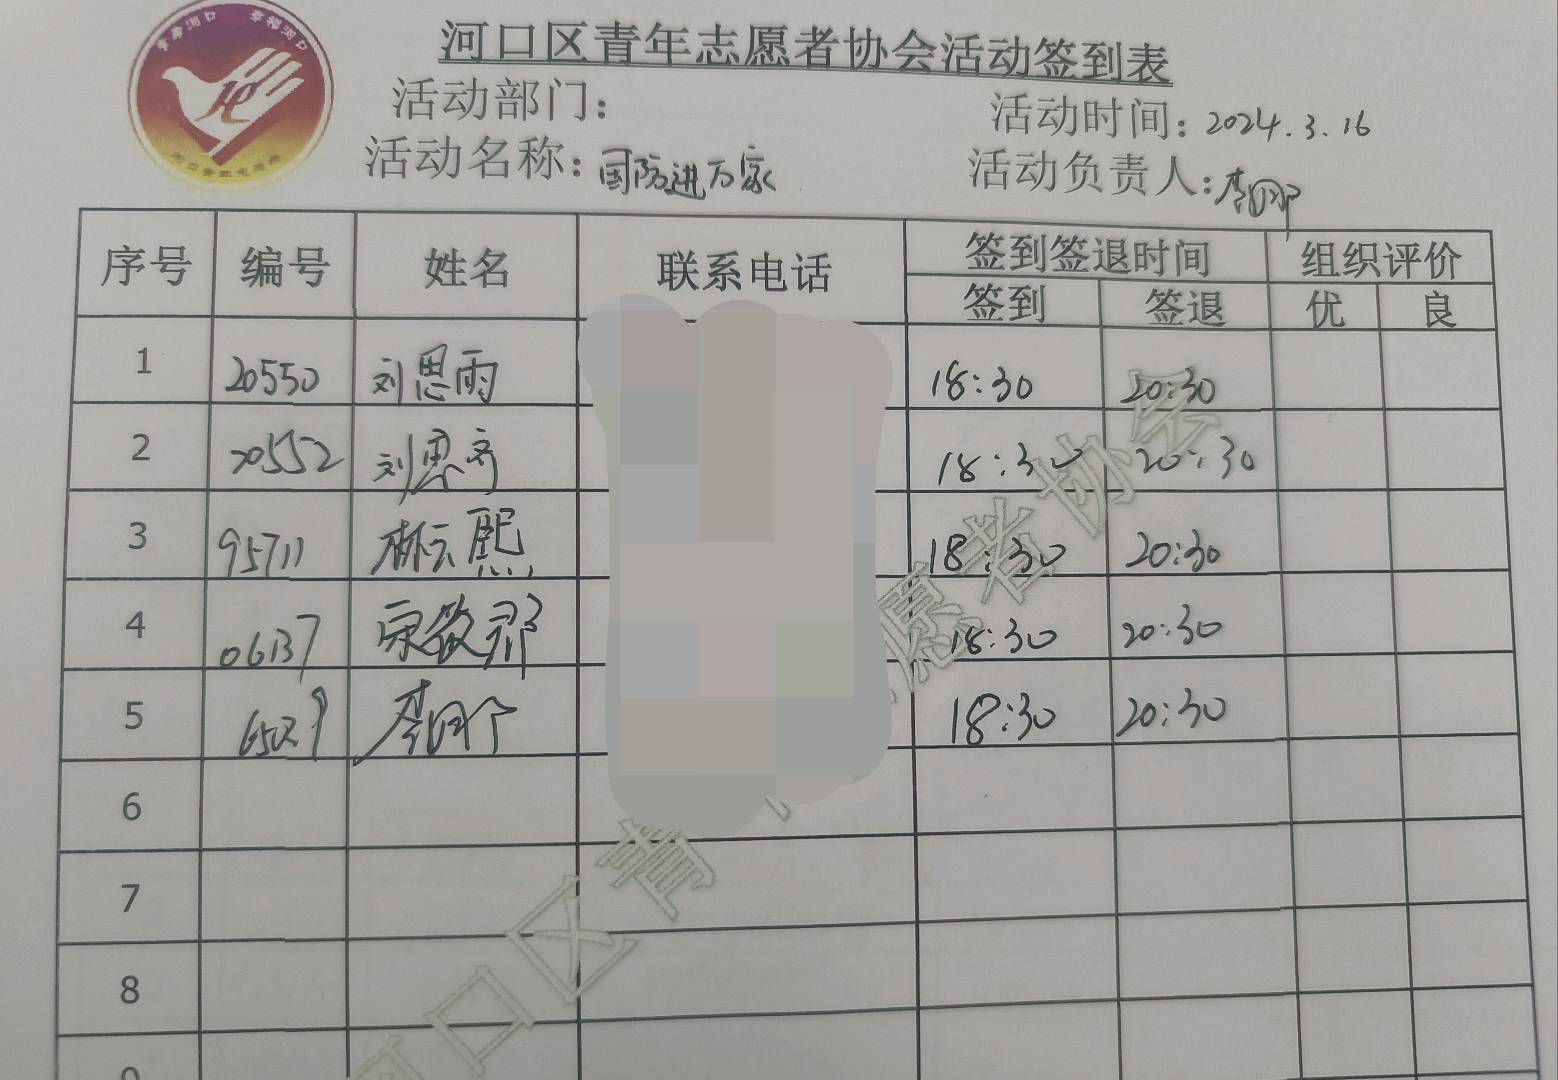 青春河口 幸福河口
河口区青年志愿者协会活动签到表
活动部门：
活动时间：2024.3.16
活动名称：国防进万家
活动负责人：李
序号 编号 姓名 联系电话 签到签退时间 组织评价
签到 签退 优 良
1 20550 刘思雨 18:30 20:30
2 20552 刘思齐 18:30 20:30
3 95711 林云熙 18:30 20:30
4 06137 宋 18:30 20:30
5 李 18:30 20:30
6
7
8
9
河口区青 愿者协会